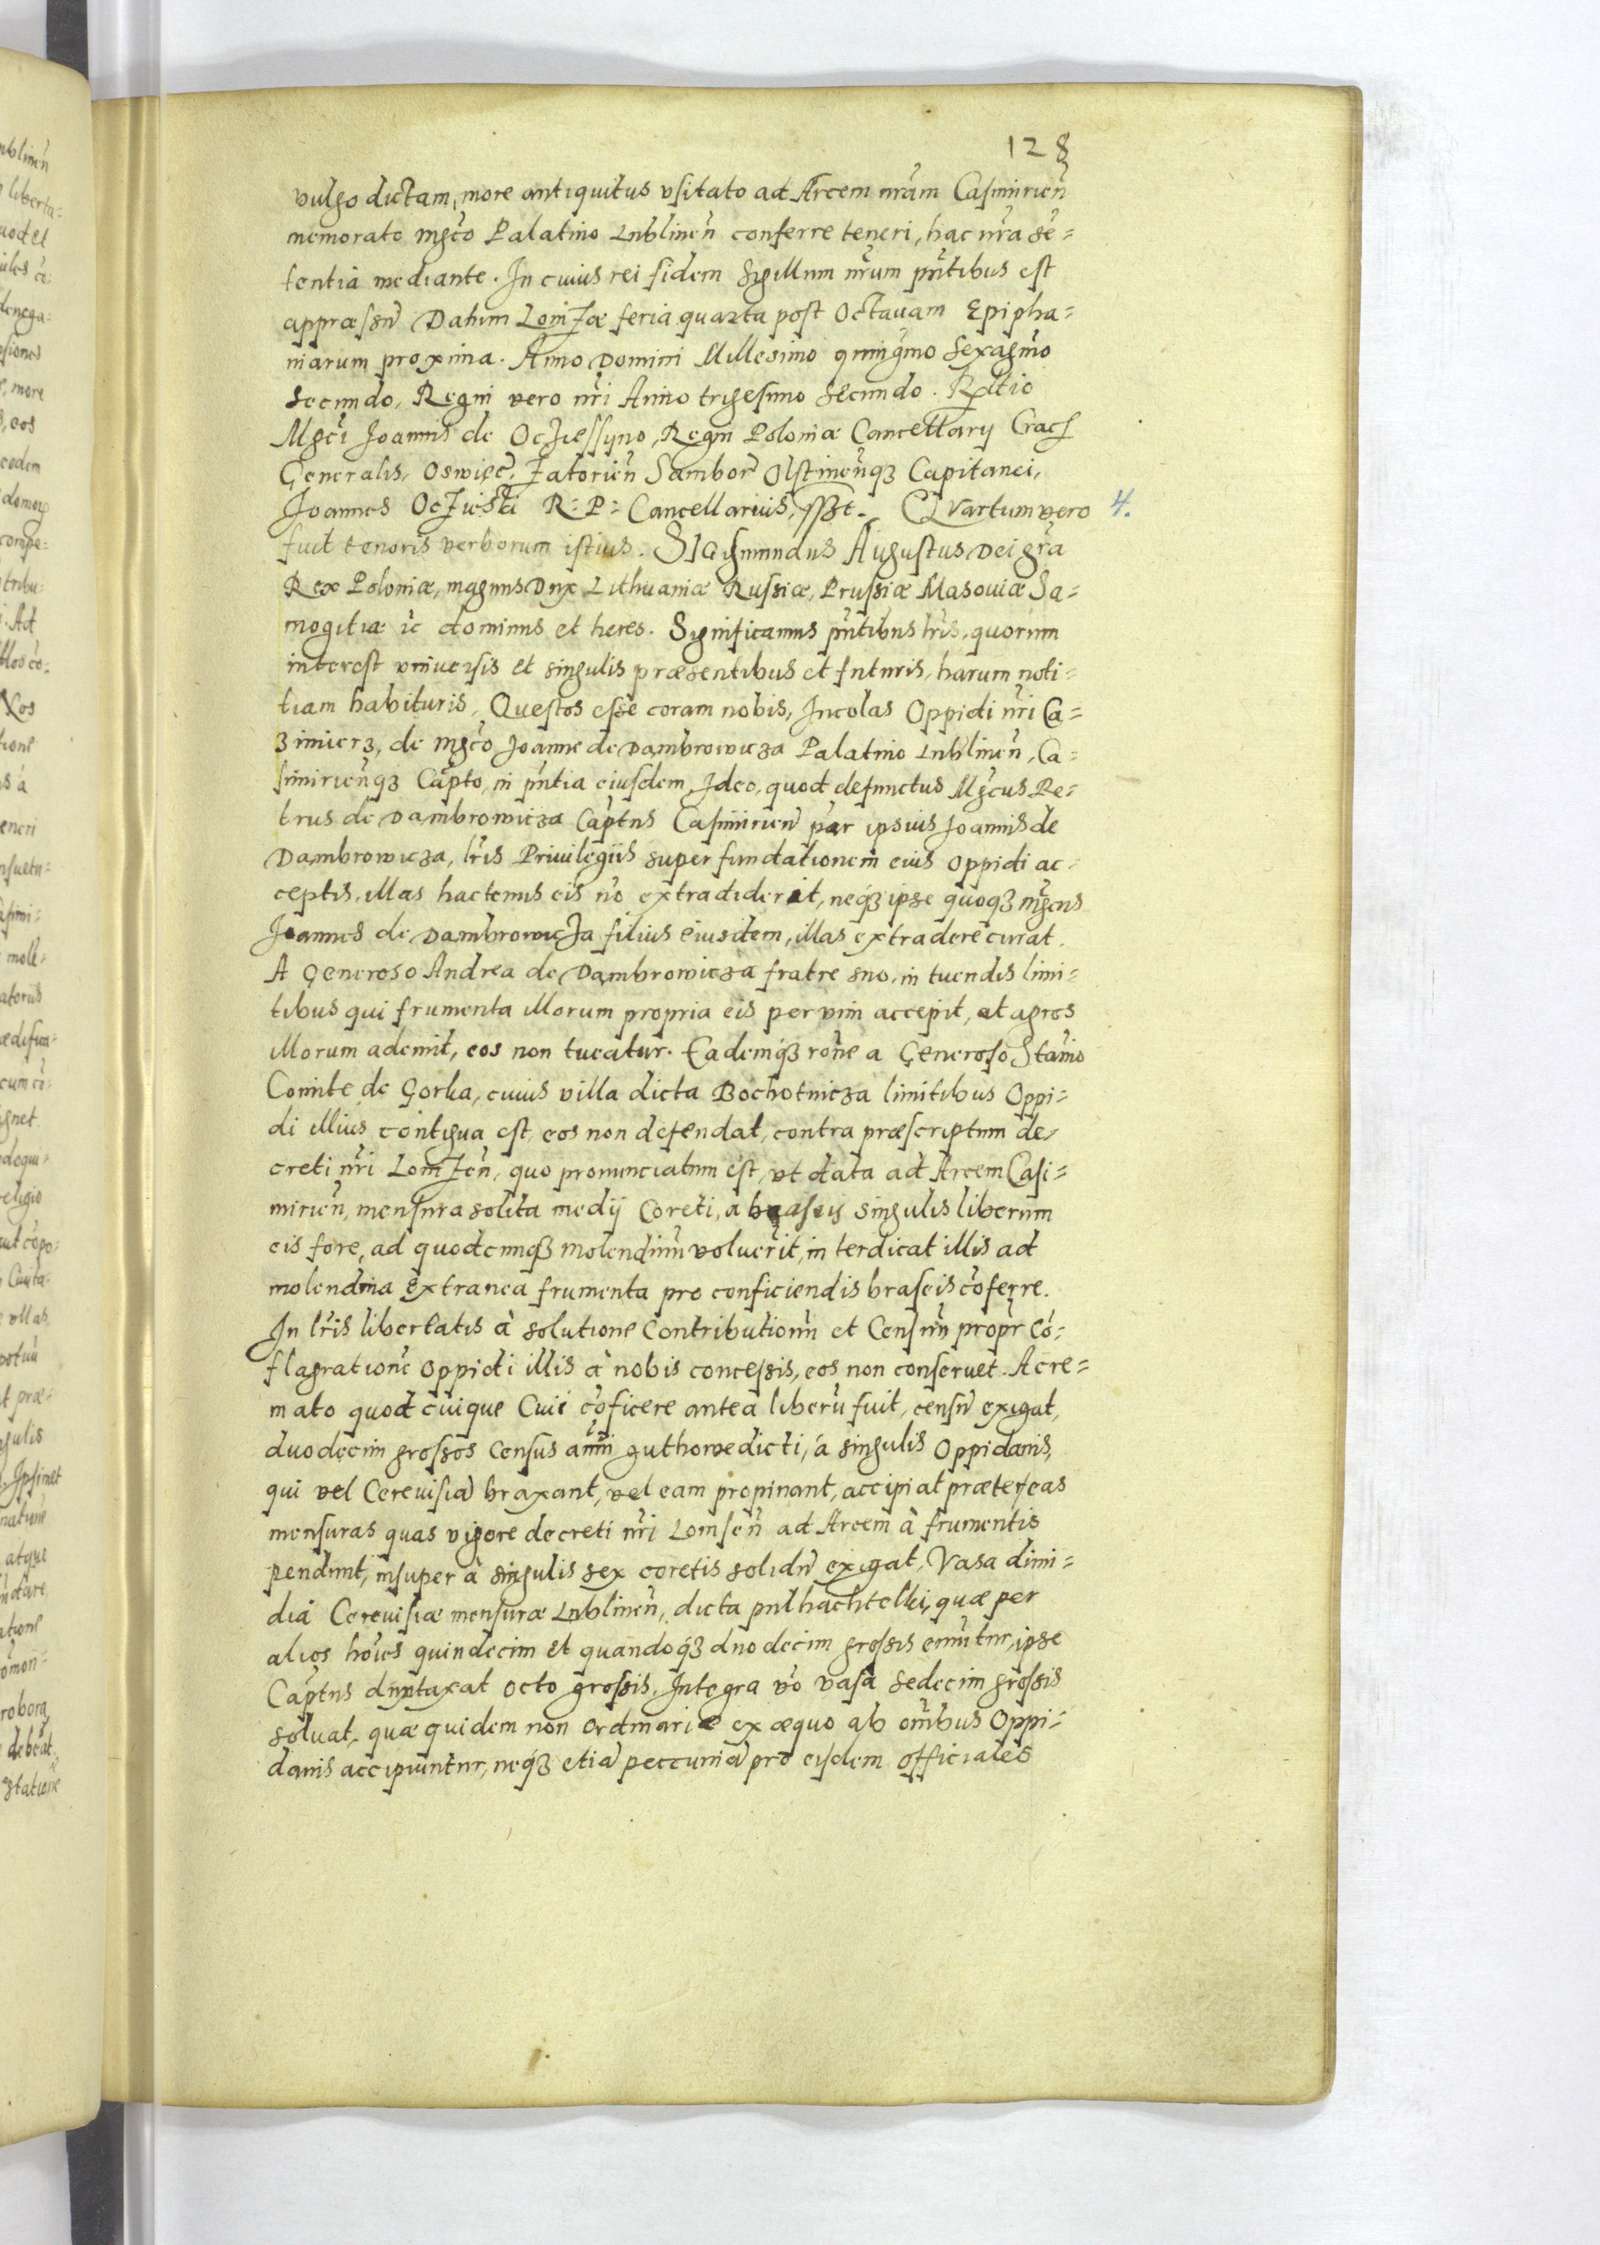 128
vulgo dictam, more antiquitus vsitato ad Arcem nr̃am Casimirieñ
memorato mgc̃o Palatino Lublineñ conferre teneri, hac nr̃a sẽ=
tentia mediante. In cuius rei fidem Sigillum nr̃um pn̄tibus est
appræsũ Datum Lomzæ feria quarta post Octauam Epipha=
niarum proxima. Anno Domini Millesimo qning̃mo Sexagm̃o
Secundo, Regni vero nr̃i Anno trigesimo Secundo. Rl̃atio
Mgc̃i Joannis de Ocziessyno, Regni Poloniæ Cancellarij Crac̃
Generalis, Oswiẽc̃, Zatorieñ Sambor̃ Olstineñqꝫ Capitanei,
Joannes Oczieski R: P: Cancellarius, sszt. Qvartum vero
4.
fuit tenoris verborum istius. SIgismundus Augustus Dei gr̃a
Rex Poloniæ, magnus Dux Lithuaniæ Russiæ, Prussiæ Masouiæ Sa=
mogitiæ ic̃ dominus et heres. Significamus pn̄tibus lr̃is, quorum
interest vniuersis et singulis præsentibus et futuris, harum noti=
tiam habituris, Questos esse coram nobis, Incolas Oppidi nr̃i Ca=
zimierz, de mgc̃o Joanne de Dambrowicza Palatino Lublineñ, Ca=
simirieñqꝫ Cap̃to, in pñtia eiusdem, Ideo, quod defunctus Mg̃cus Pe=
trus de Dambrowicza Cap̃tus Casimirieñ par ipsius Joannis de
Dambrowicza, lr̃is Priuilegijs super fundationem eius oppidi ac=
ceptis, illas hactenus eis nõ extradiderit, neq́ꝫ ipse quoqꝫ mg̃cus
Joannes de Dambrowicza filius eiusdem, illas extradere curat.
A Generoso Andrea de Dambrowicza fratre suo, in tuendis limi=
tibus qui frumenta illorum propria eis per vim accepit, et agros
illorum ademit, eos non tueatur. Eademq́ꝫ rõne a Generoso Stañio
Comite de Gorka, cuius villa dicta Bochotnicza limitibus Oppi=
di illius contigua est, eos non defendat, contra præscriptum de=
creti nr̃i Lomzeñ, quo pronunciatum est, vt data ad Arcem Casi=
mirieñ, mensura solita medij Coreti, a braseis singulis liberum
eis fore, ad quodcunqꝫ molendinũ voluerit, in terdicat illis ad
molendina extranea frumenta pro conficiendis braseis cõferre.
In lr̃is libertatis à solutione Contributionũ et Censuũ propr̃ Cõ=
flagrationẽ oppidi illis à nobis concessis, eos non conseruet. A cre=
mato quod cuique Ciui cõficere antea liberũ fuit, censũ exigat,
duodecim grossos Census anñi guthowedicti, á singulis Oppidanis,
qui vel Cereuisiã braxant, vel eam propinant, accipiat præter eas
mensuras quas vigore decreti nr̃i Lomseñ ad Arcem à frumentis
pendunt, insuper à singulis sex coretis solidũ exigat, Vasa dimi=
dia Cereuisiæ mensuræ Lublineñ, dicta pulhachtelki, quæ per
alios hoĩes quindecim et quandoq́ꝫ duodecim grossis emũtur, ipse
Cap̃tus duntaxat octo grossis, Integra võ vasa sedecim grossis
soluat, quæ quidem non ordinariæ ex æquo ab om̃ibus Oppi=
danis accipiuntur, neq́ꝫ etiã peccuniã pro eisdem officiales